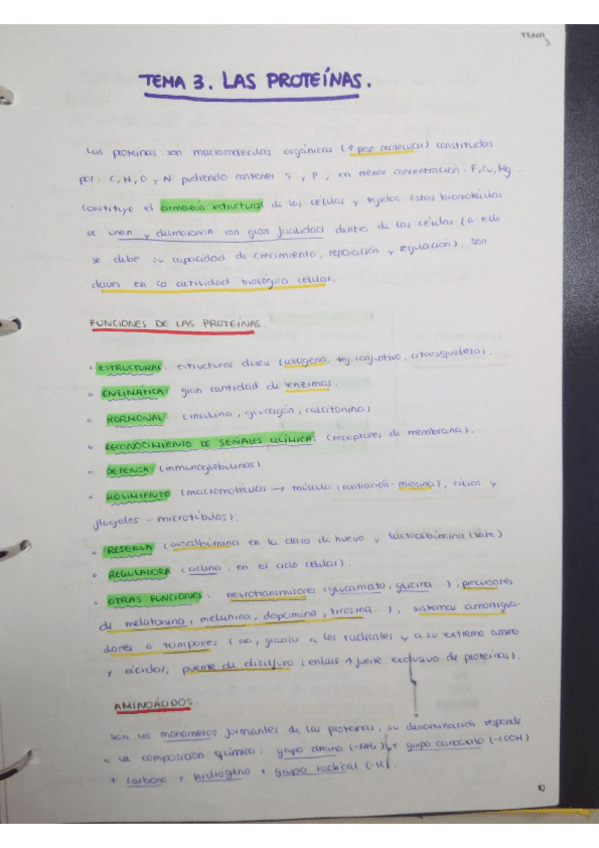 TEMA 3
TEMA 3. LAS PROTEÍNAS.
Las proteínas son macromoléculas orgánicas (↑ peso molecular) constituidas
por: C, H, O, y N pudiendo contener S, y P, en menor concentración: F, Cu, Mg...
Constituye el armazón estructural de las células y tejidos. Estas biomoléculas
se unen y dismocian con gran facilidad dentro de las células (a ello
se debe su capacidad de crecimiento, reparación y regulación). Son
claves en la actividad biológica celular.
FUNCIONES DE LAS PROTEÍNAS.
• ESTRUCTURAL: estructuras (colágeno, tej. conjuntivo, citoesqueleto).
• ENZIMÁTICA: gran cantidad de enzimas.
• HORMONAL: (insulina, glucagón, calcitonina)
• RECONOCIMIENTO DE SEÑALES QUÍMICAS (receptores de membrana).
• DEFENSA (inmunoglobulinas)
• MOVIMIENTO (macromoléculas → músculo (contracción - miosina), cilios y
flagelos - microtúbulos).
• RESERVA (ovoalbúmina en la clara de huevo y lactoalbúmina (leche)
• REGULADORA (ciclina: en el ciclo celular).
• OTRAS FUNCIONES: neurotransmisores (glutamato, glicina...), precursores
de melatonina, melanina, dopamina, tirosina...), sistemas amortigua-
dores o tampones (aa, gracias a los radicales y a su extremo amino
y ácidos), puente de disulfuro (enlace fuerte exclusivo de proteínas).
AMINOÁCIDOS.
Son los monómeros formantes de las proteínas, su denominación responde
a la composición química: grupo amino (-NH₂) + grupo carboxilo (-COOH)
+ carbono + hidrógeno + grupo radical (-R).